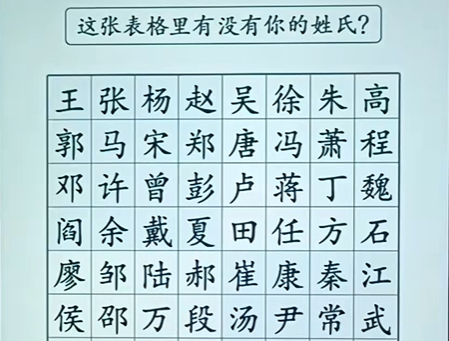 这张表格里有没有你的姓氏?
王 张 杨 赵 吴 徐 朱 高
郭 马 宋 郑 唐 冯 萧 程
邓 许 曾 彭 卢 蒋 丁 魏
阎 余 戴 夏 田 任 方 石
廖 邹 陆 郝 崔 康 秦 江
侯 邵 万 段 汤 尹 常 武